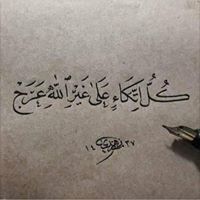 كُلُّ اِتِّكَاءٍ عَلَىٰ غَيْرِ اللّٰهِ عَرَجْ
١٤٣٧